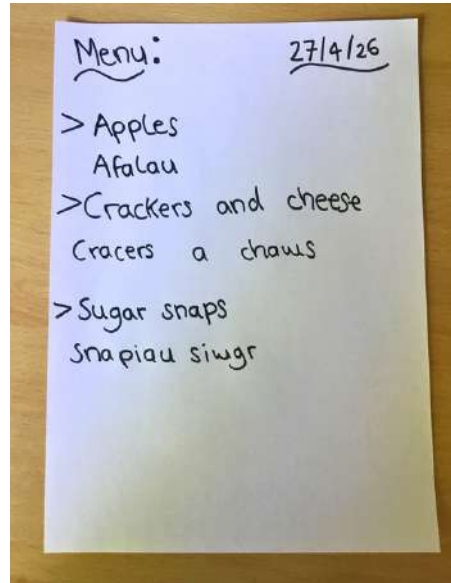 Menu: 27/4/26
> Apples
Afalau
> Crackers and cheese
Cracers a chaws
> Sugar snaps
Snapiau siwgr